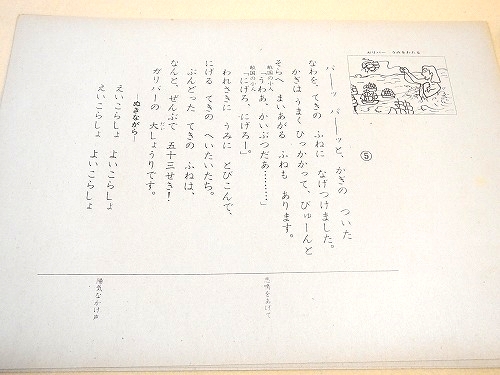 ガリバー うみをわたる
⑤
パーッ パーッと、かぎの ついた
なわを、てきの ふねに なげつけました。
かぎは うまく ひっかかって、びゅーんと
そらへ まいあがる ふねも あります。
敵国の小人「うわあ、かいぶつだあ………」
敵国の小人「にげろ、にげろー。」
われさきに うみに とびこんで、
にげる てきの へいたいたち。
ぶんどった てきの ふねは、
なんと、ぜんぶで 五十三せき！
ガリバーの 大しょうりです。
―ぬきながら―
えいこらしょ よいこらしょ
えいこらしょ よいこらしょ
悲鳴をあげて
陽気なかけ声